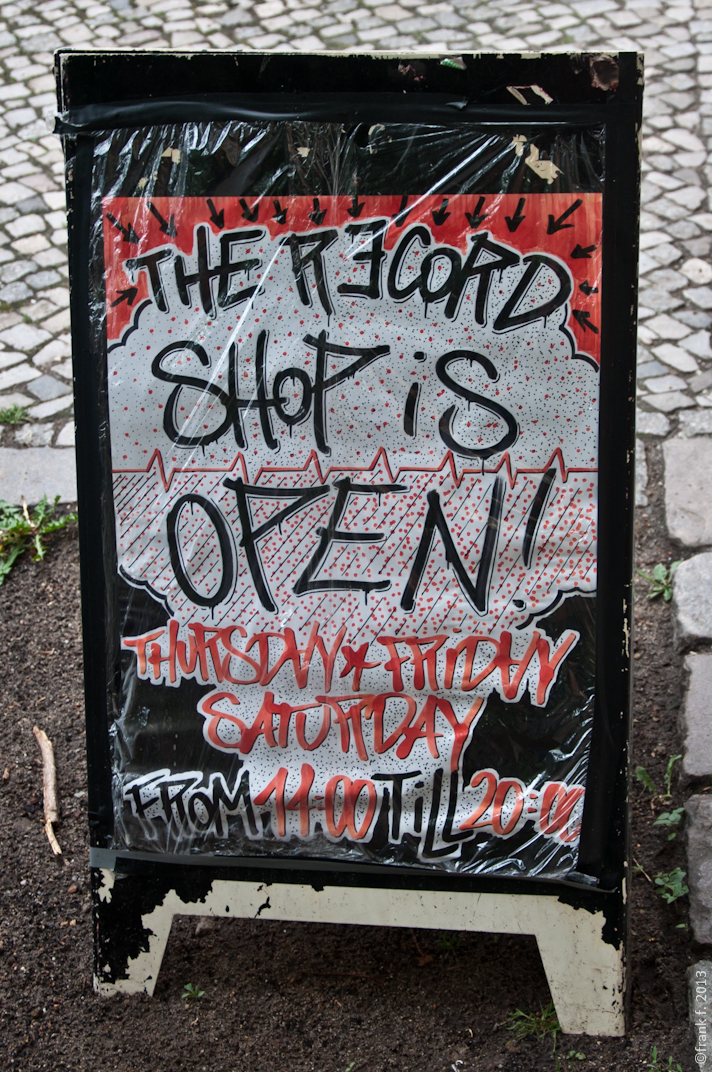 THE RECORD
SHOP iS
OPEN!
THURSDAY * FRiDAY
SATURDAY
FROM 11:00 TiLL 20:00
©frank.f. 2013